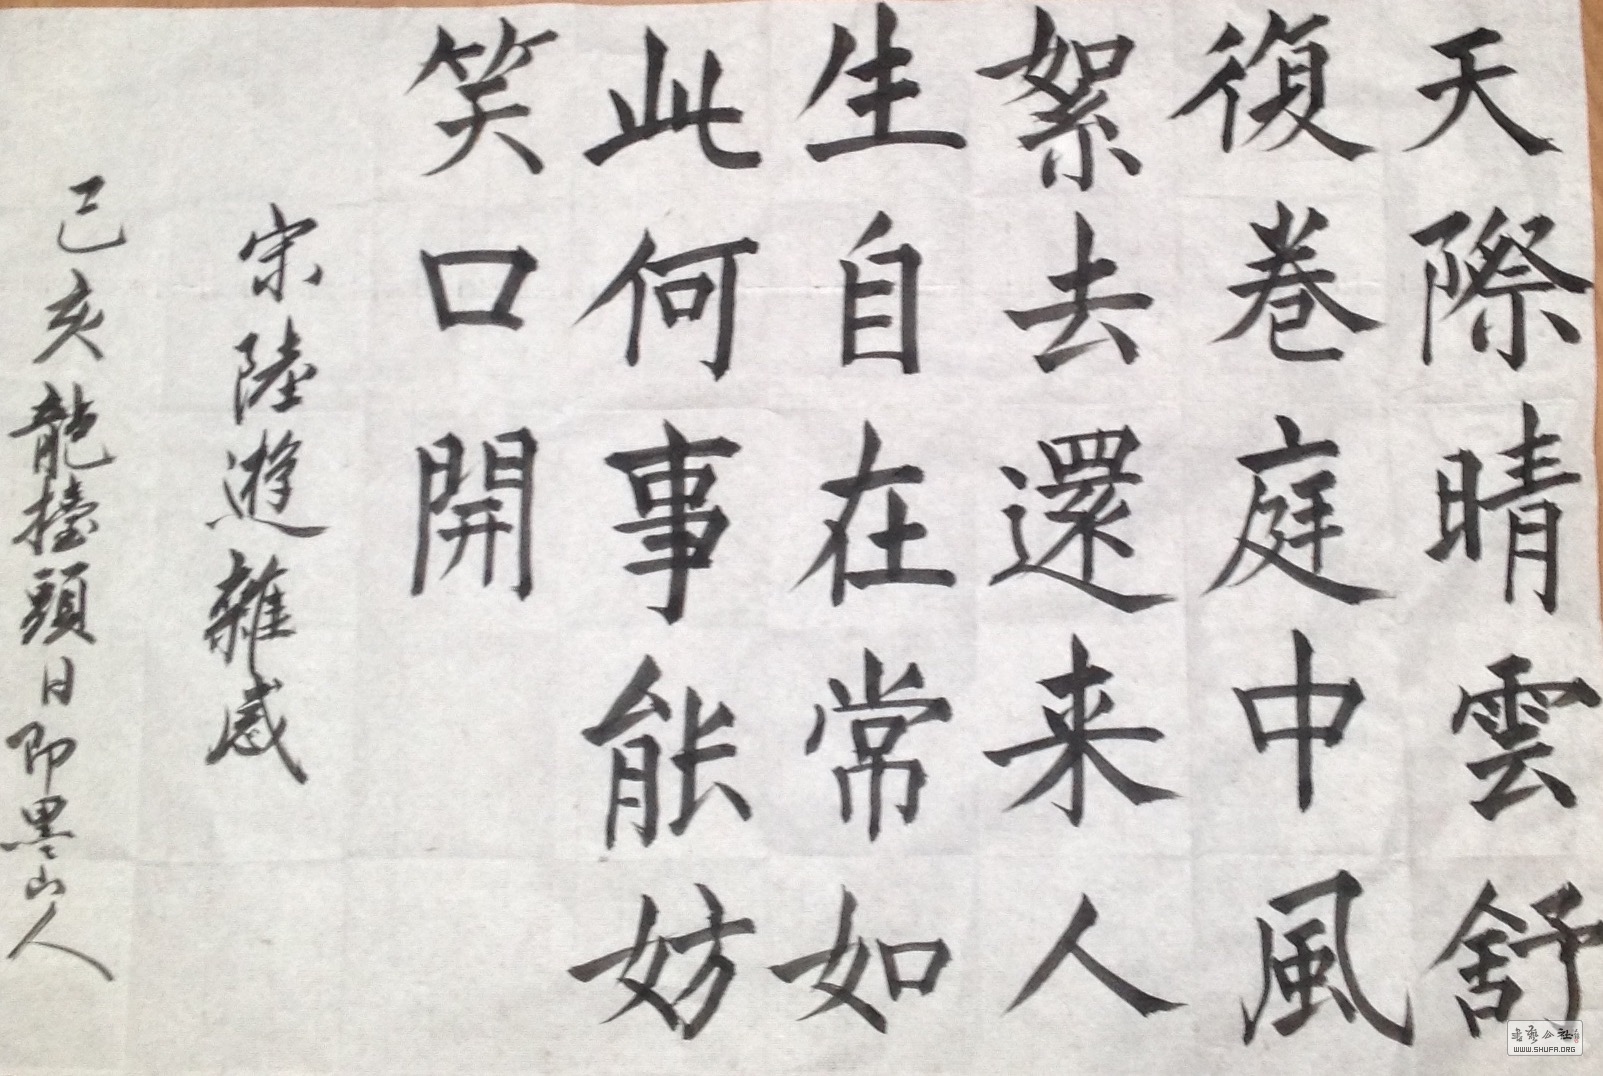 天際晴雲舒
復卷庭中風
絮去還来人
生自在常如
此何事能妨
笑口開
宋陸遊雜感
己亥龍檯頭日即墨山人
WWW.SHUFA.ORG